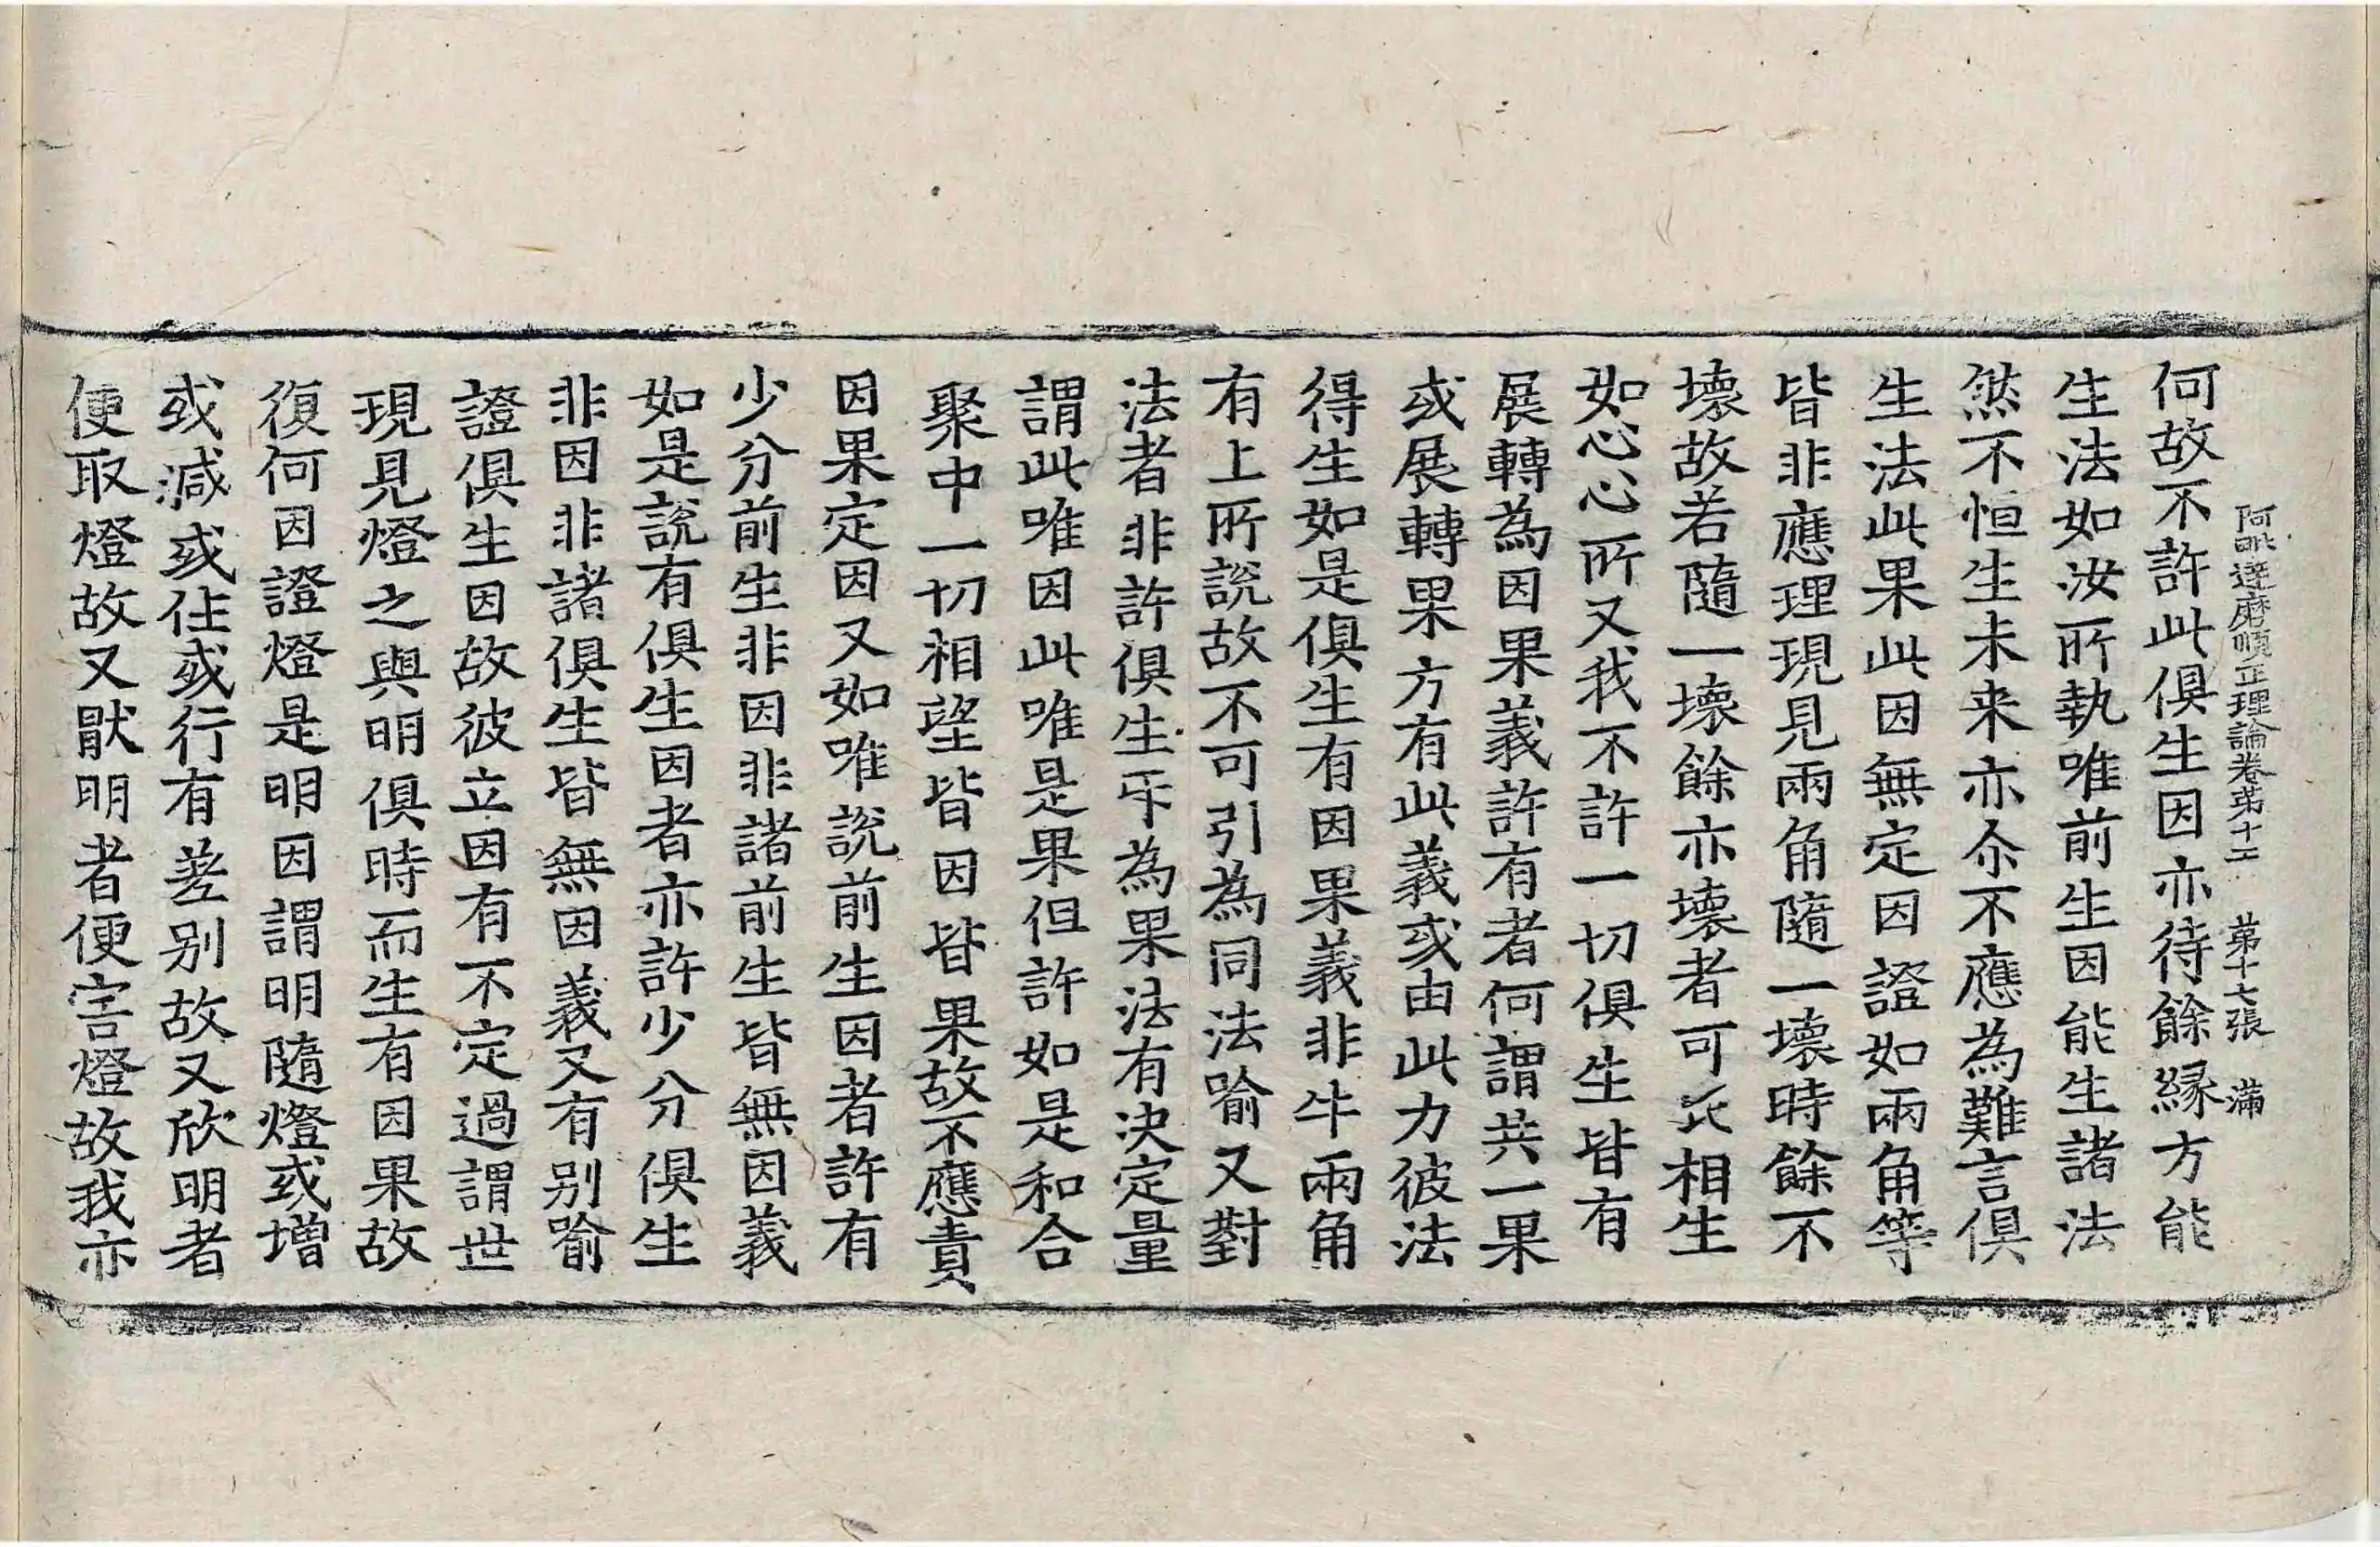 阿毗達磨順正理論卷第十五　第十七張　滿
何故不許此俱生因亦待餘緣方能
生法如汝所執唯前生因能生諸法
然不恒生未来亦尒不應為難言俱
生法此果此因無定因證如兩角等
皆非應理現見兩角隨一壞時餘不
壞故若隨一壞餘亦壞者可立相生
如心心所又我不許一切俱生皆有
展轉為因果義許有者何謂共一果
或展轉果方有此義或由此力彼法
得生如是俱生有因果義非牛兩角
有上所說故不可引為同法喻又對
法者非許俱生互為果法有決定量
謂此唯因此唯是果但許如是和合
聚中一切相望皆因皆果故不應責
因果定因又如唯說前生因者許有
少分前生非因非諸前生皆無因義
如是說有俱生因者亦許少分俱生
非因非諸俱生皆無因義又有別喻
證俱生因故彼立因有不定過謂世
現見燈之與明俱時而生有因果故
復何因證燈是明因謂明隨燈或增
或減或住或行有差別故又欣明者
便取燈故又猒明者便害燈故我亦